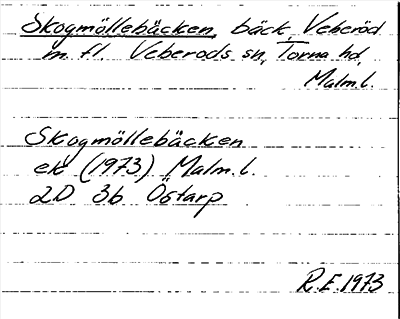 Skogmöllebäcken, bäck, Veberöd
m. fl. Veberöds sn, Torna hd,
Malm.l.
Skogmöllebäcken
ek (1973) Malm.l.
2D 3b Östarp
R.E. 1973